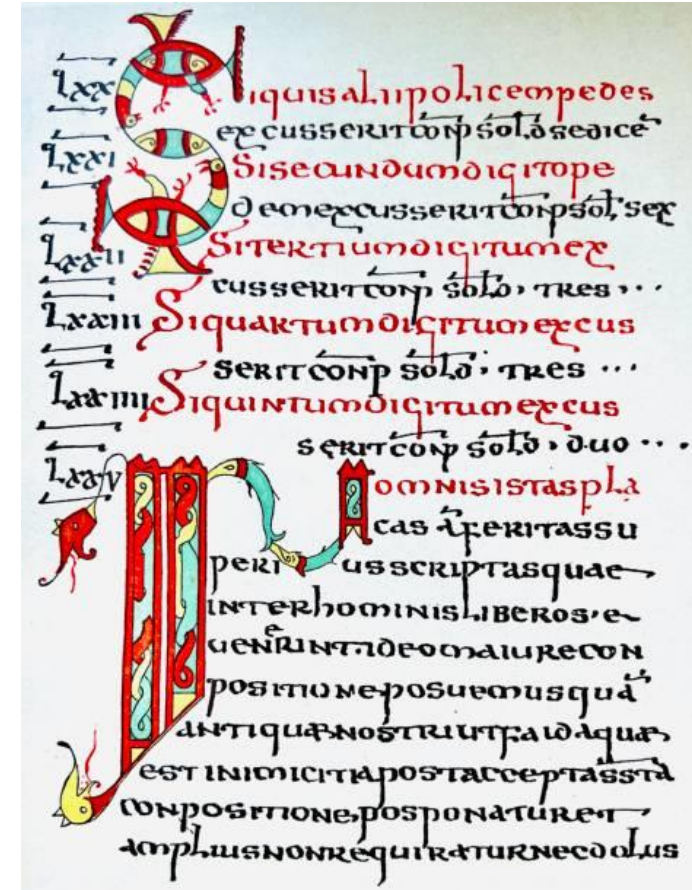 Lxx Siquisaliipolicempedes
excusseritconp sold sedice
Lxxi Sisecundumdigitope
demexcusseritconpsol, sex
Lxxii Sitertiumdigitumex
cusseritconp sold, tres ...
Lxxiii Siquartumdigitumexcus
seritconp sold, tres ...
Lxxiiii Siquintumdigitumexcus
seritconp sold, duo ...
Lxxv Inomnisistaspla
cas feritassu
periusscriptasquae
interhominisliberos, e
uenerint. ideomaiurecon
positioneposuemusqua
antiquaenostriutfaidaquae
estinimicitiapostacceptassta
conpositione, posponaturet
ampliusnonrequiraturnecdolus